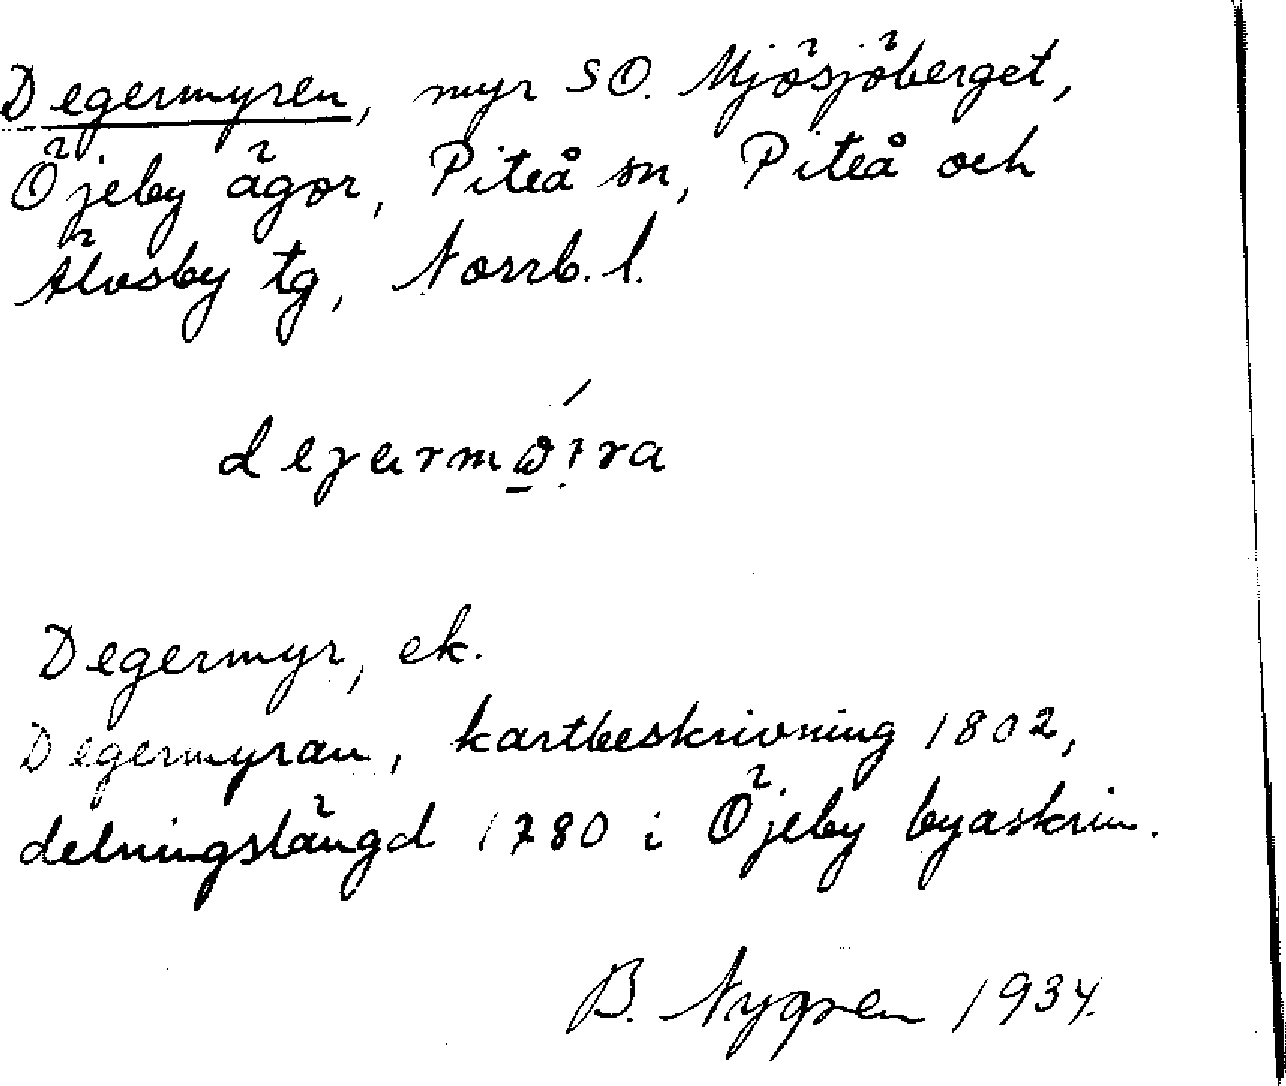 Degermyren, myr SO. Mjösjöberget,
Öjeby ägor, Piteå sn, Piteå och
Älvsby tg, Norrb. l.
Degermyr, ek.
Degermyran, kartbeskrivning 1802,
delningslängd 1780 i Öjeby byaskrin.
B. Nygren 1934.